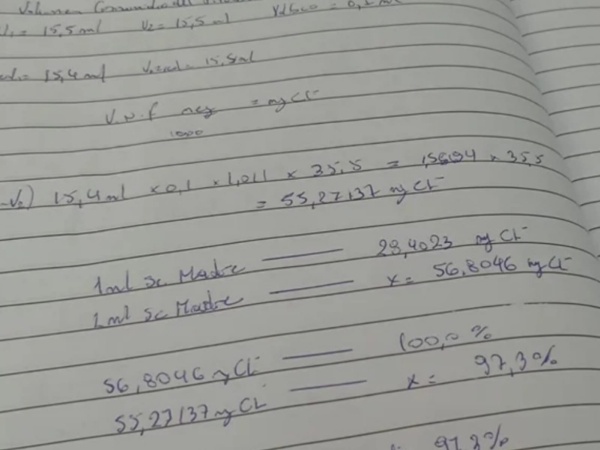 Volumen
V1 = 15,5 ml V2 = 15,5 ml
15,4 ml 15,5 ml
V.N.f meq = mg Cl-
1000
15,4 ml x 0,1 x 1,011 x 35,5 = 1,5694 x 35,5
= 55,27137 mg Cl-
1 ml Sc Madre —— 28,4023 mg Cl-
2 ml Sc Madre —— x = 56,8046 mg Cl-
56,8046 mg Cl- —— 100,0 %
55,27137 mg Cl- —— x = 97,3%
97,3%